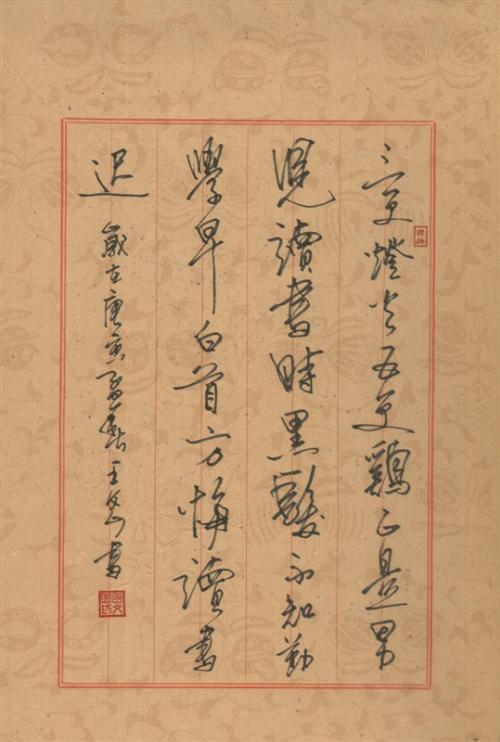 三更燈火五更鷄正是男
兒讀書時黑髮不知勤
學早白首方悔讀書
遲
歲在庚寅孟春王書